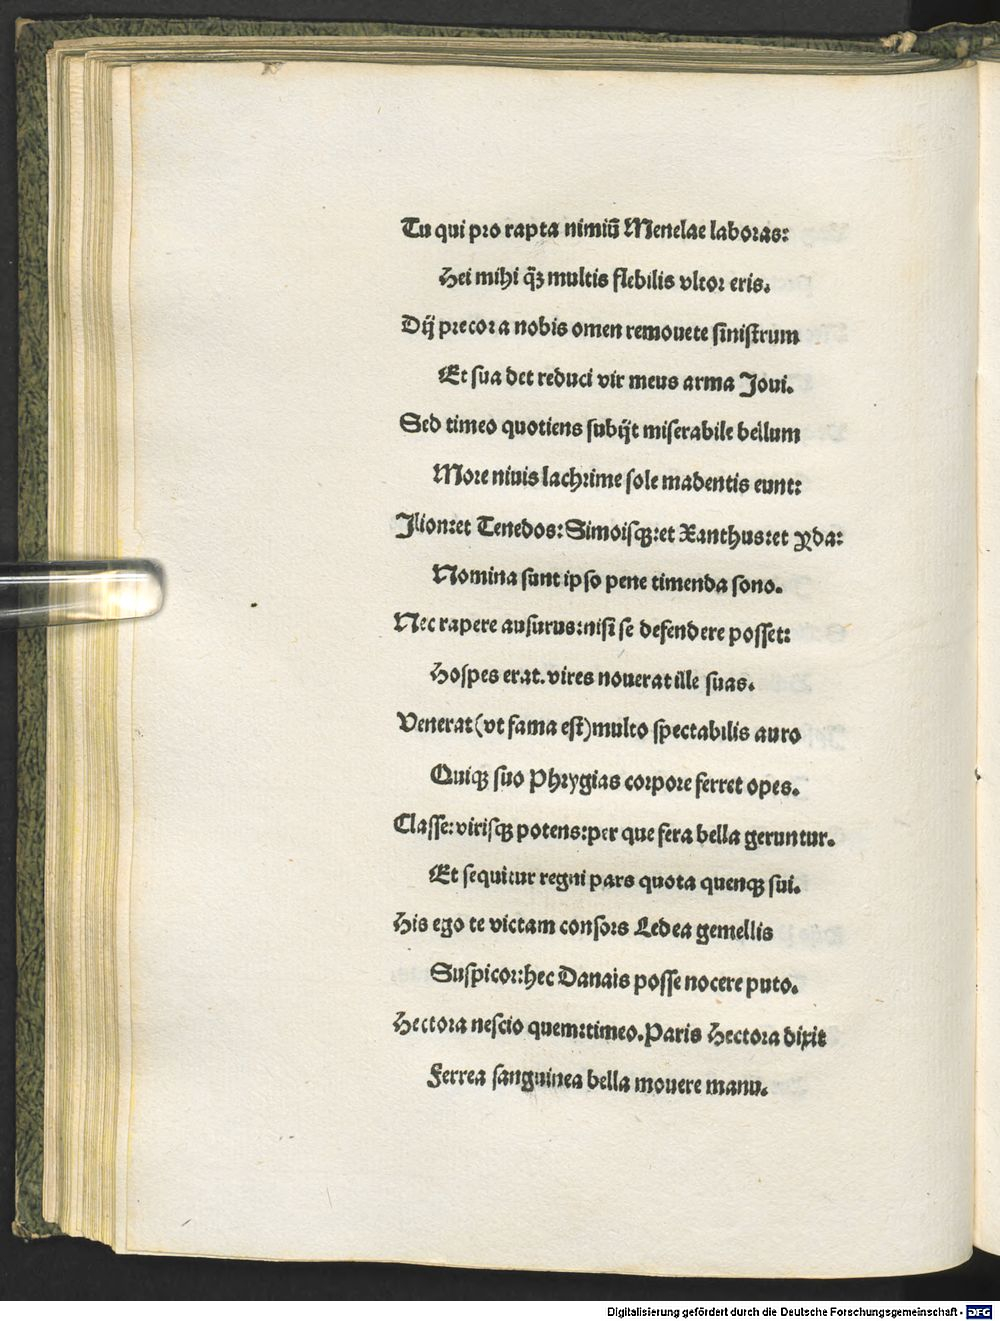 Tu qui pro rapta nimiū Menelae laboras:
Hei mihi q̄ꝫ multis flebilis vltor eris.
Dij precor a nobis omen remouete sinistrum
Et sua det reduci vir meus arma Joui.
Sed timeo quotiens subijt miserabile bellum
More niuis lachrime sole madentis eunt:
Jlion:et Tenedos:Simoisqꝫ:et Xanthus:et yda:
Nomina sunt ipso pene timenda sono.
Nec rapere ausurus:nisi se defendere posset:
Hospes erat.vires nouerat ille suas.
Venerat(vt fama est)multo spectabilis auro
Quiqꝫ suo Phrygias corpore ferret opes.
Classe:virisqꝫ potens:per que fera bella geruntur.
Et sequitur regni pars quota quenqꝫ sui.
His ego te victam consors Ledea gemellis
Suspicor:hec Danais posse nocere puto.
Hectora nescio quem:timeo.Paris Hectora dixit
Ferrea sanguinea bella mouere manu.
Digitalisierung gefördert durch die Deutsche Forschungsgemeinschaft - DFG